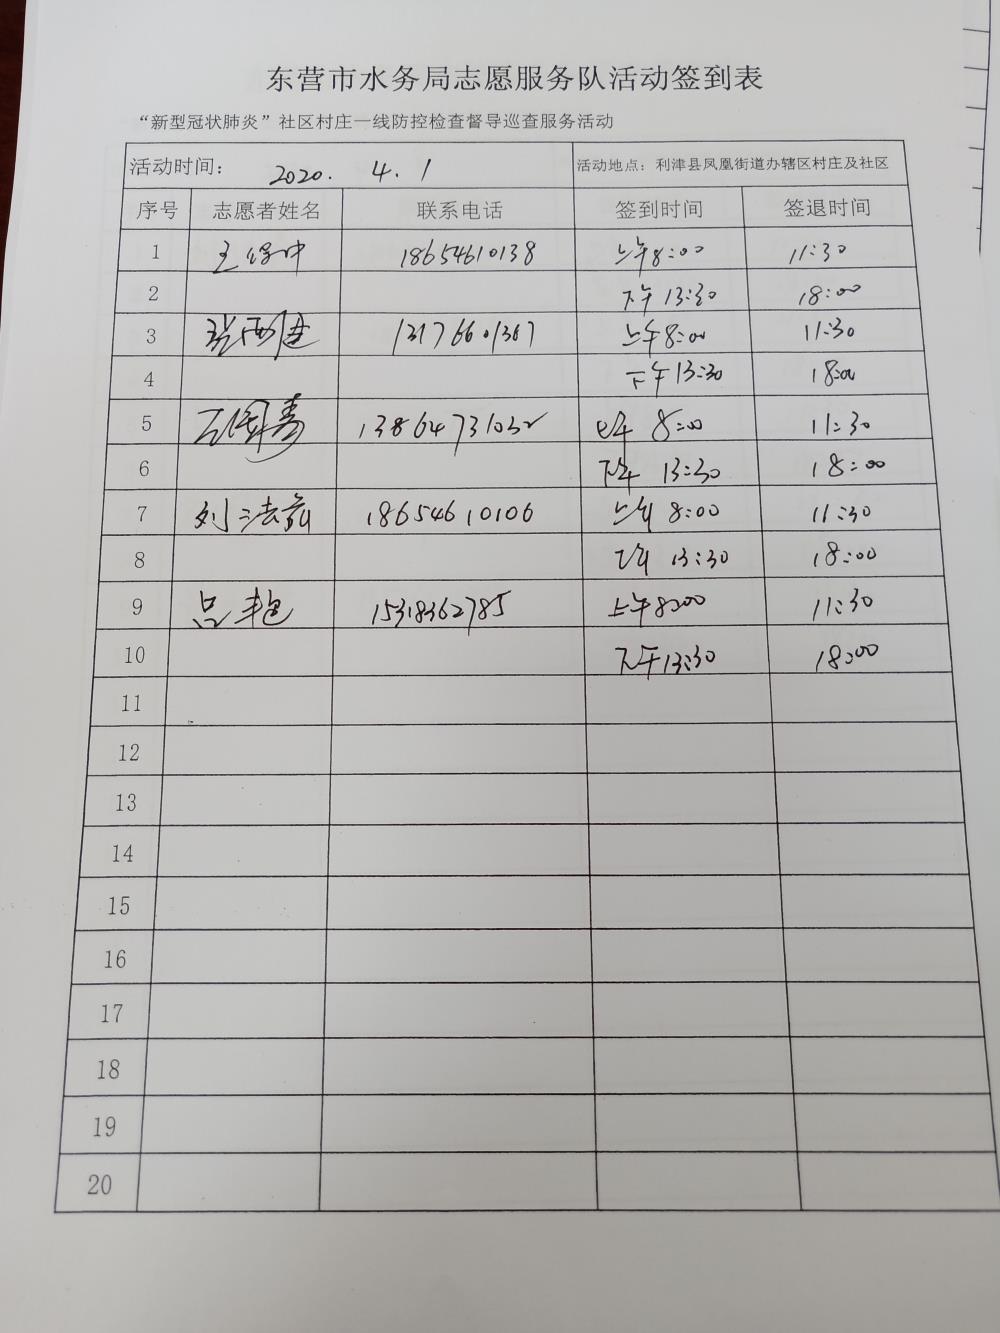 东营市水务局志愿服务队活动签到表
“新型冠状肺炎”社区村庄一线防控检查督导巡查服务活动
活动时间： 2020. 4. 1 活动地点：利津县凤凰街道办辖区村庄及社区
序号 志愿者姓名 联系电话 签到时间 签退时间
1 18654610138 上午8:00 11:30
2 下午 13:30 18:00
3 13176601367 上午8:00 11:30
4 下午 13:30 18:00
5 13864731032 上午 8:00 11:30
6 下午 13:30 18:00
7 刘 18654610106 上午 8:00 11:30
8 下午 13:30 18:00
9 吕 15318362785 上午8:00 11:30
10 下午13:30 18:00
11
12
13
14
15
16
17
18
19
20